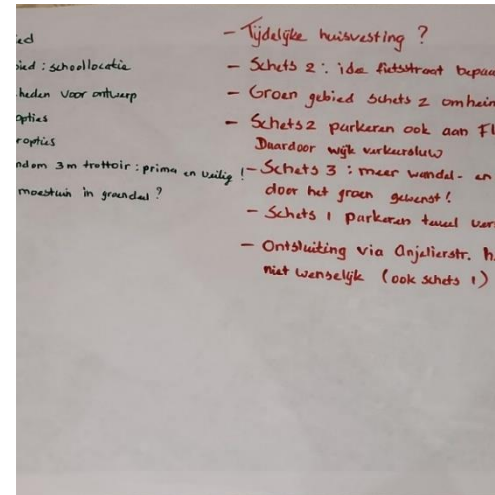 ied
bied : schoollocatie
heden voor ontwerp
opties
ropties
ndom 3m trottoir : prima en veilig !
moestuin in groendeel ?
- Tijdelijke huisvesting ?
- Schets 2 : idee fietsstraat bepaa
- Groen gebied schets 2 omhein
- Schets 2 parkeren ook aan Fl
Daardoor wijk verkeersluw
- Schets 3 : meer wandel- en
door het groen gewenst !
- Schets 1 parkeren teveel ver
- Ontsluiting via Anjelierstr. h
niet wenselijk (ook schets 1)